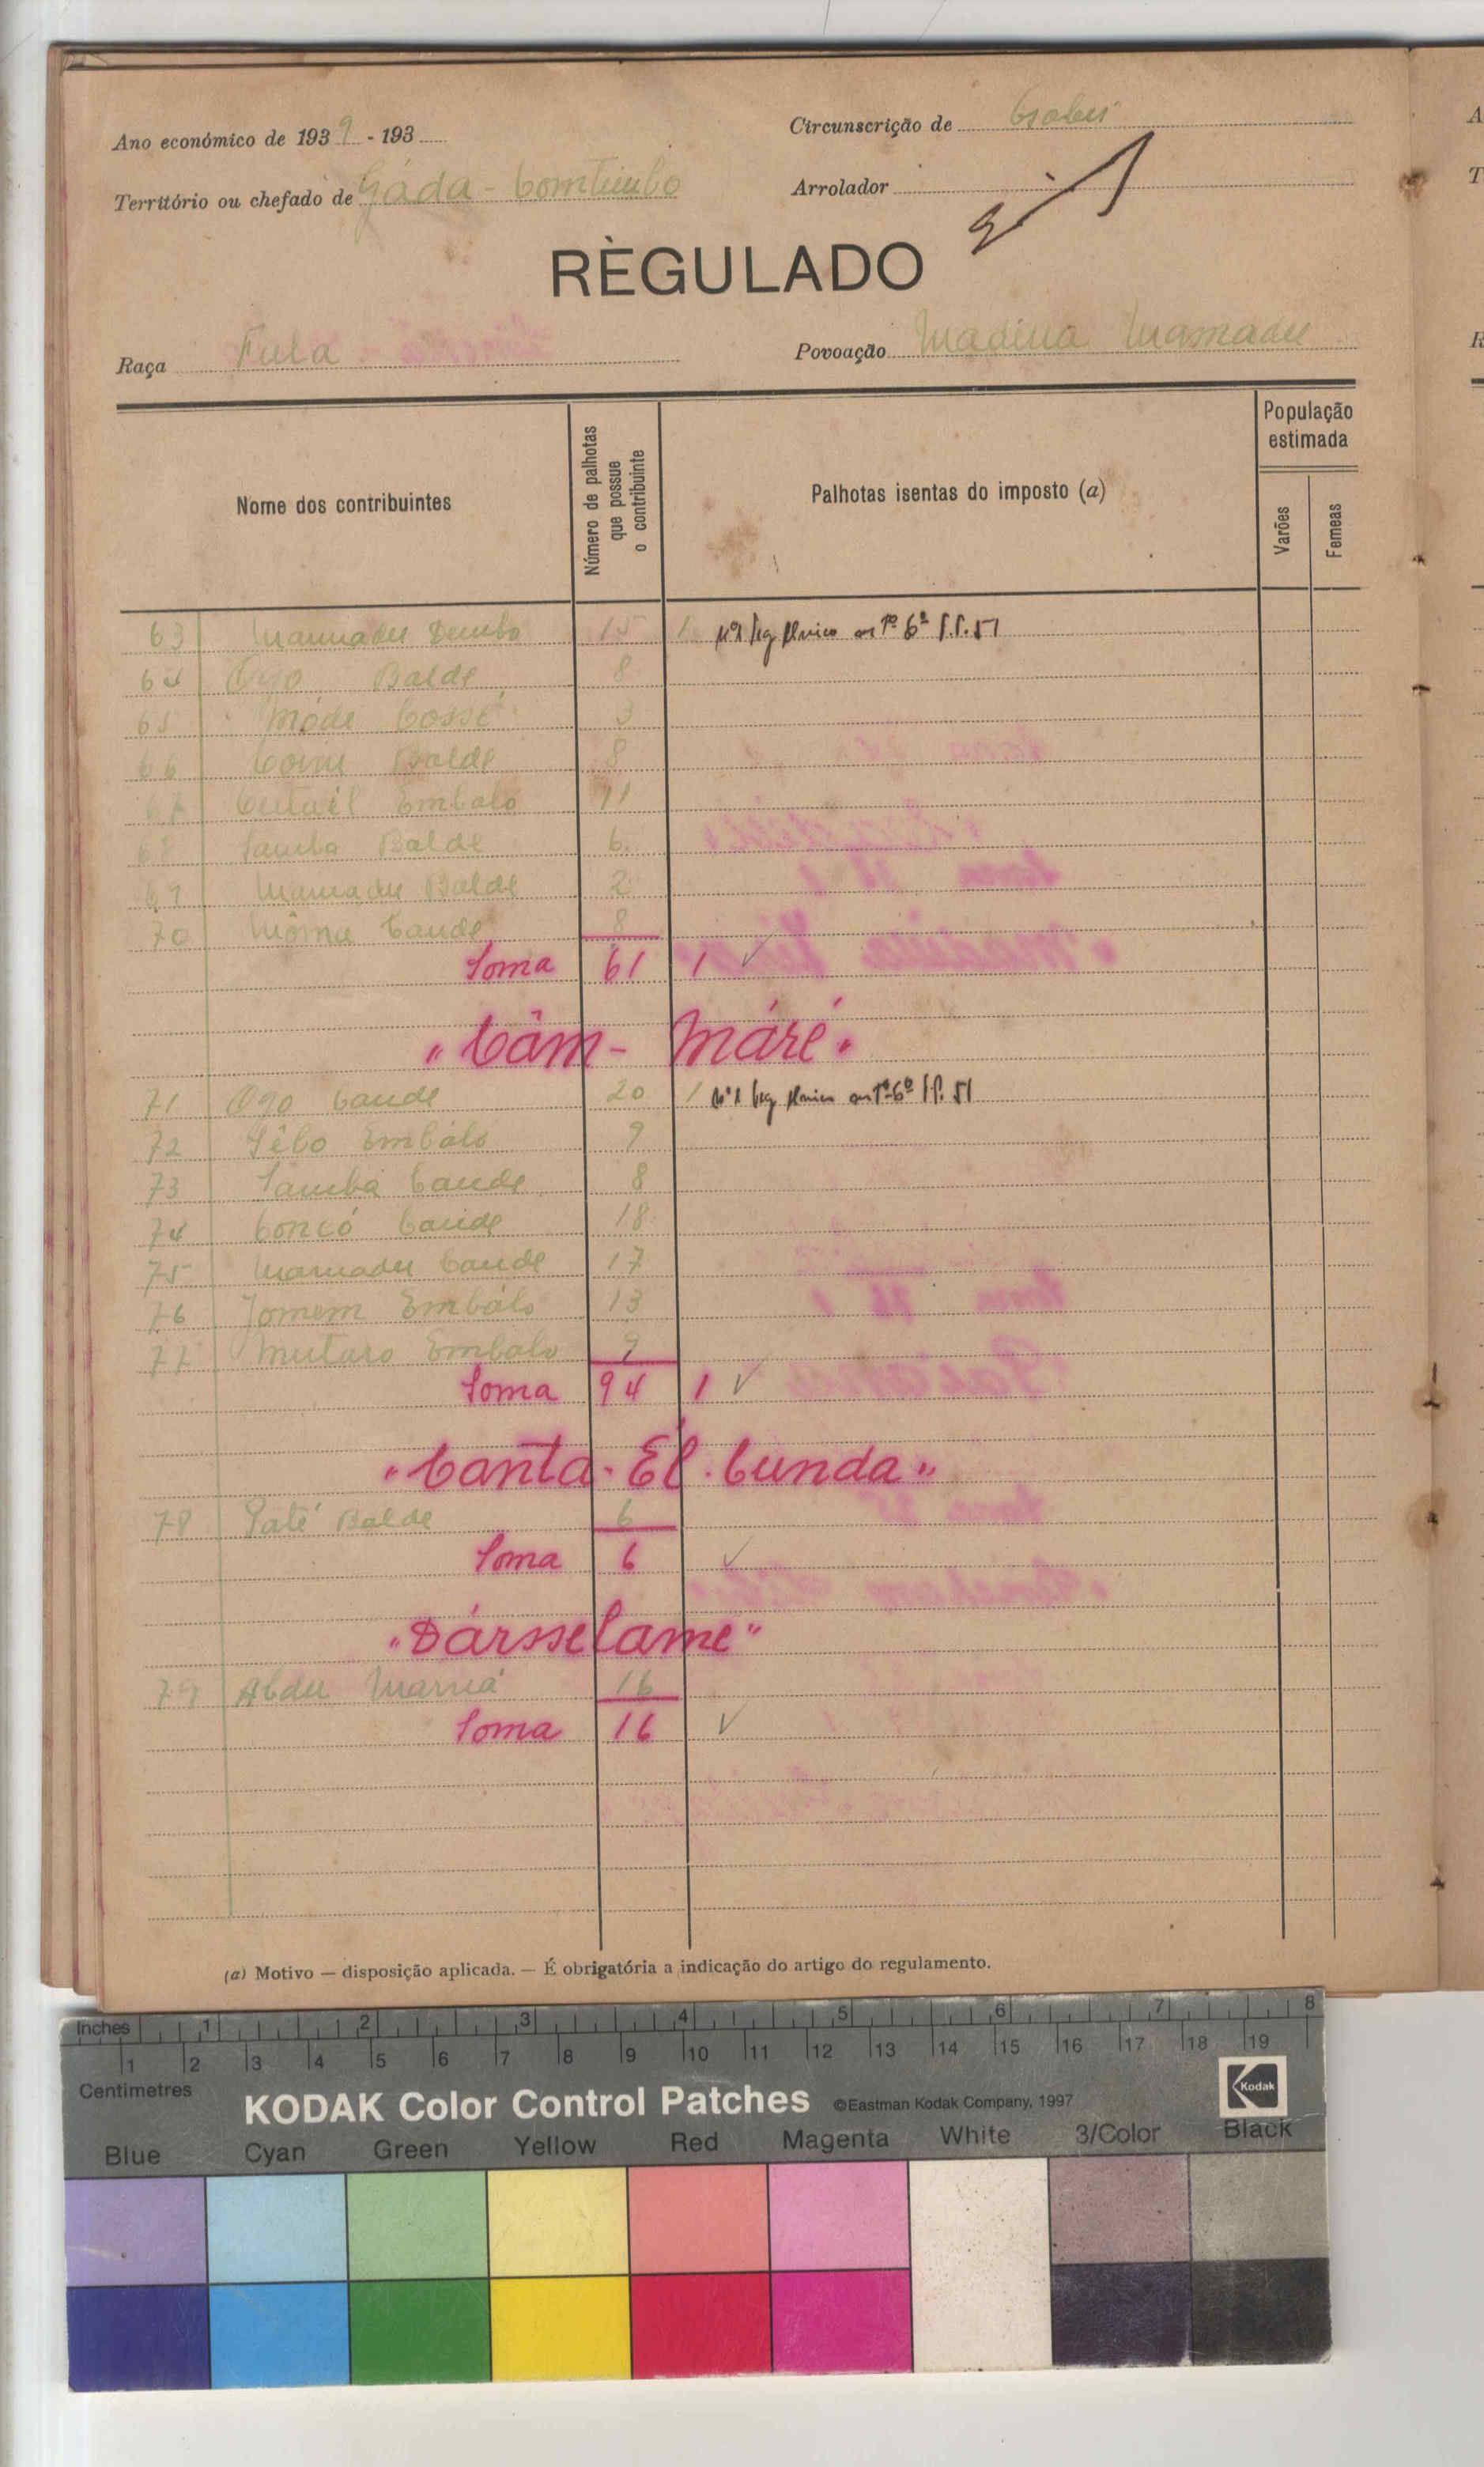 Ano económico de 1939 - 193
Circunscrição de Gabú
Território ou chefado de Gáda - Comtimbo
Arrolador
RÈGULADO
Raça Fula
Povoação Madina Mamadu
Nome dos contribuintes
Número de palhotas que possue o contribuinte
Palhotas isentas do imposto (a)
População estimada
Varões
Femeas
63 Mamadu Dembo 15 1
64 Ogo Balde 8
65 Móde Cossé 3
66 Balde 8
67 Embalo 11
68 Samba Balde 6
69 Mamadu Balde 2
70 Cande 8
Soma 61 1
"Câm - Máré"
71 Ogo Cande 20 1
72 Embaló 9
73 Samba Cande 8
74 Concó Cande 18
75 Mamadu Cande 17
76 Jomem Embálo 13
77 Mutaro Embalo 9
Soma 94 1
"Canta - El - Cunda"
78 Paté Balde 6
Soma 6
"Dársselame"
79 Abdu 16
Soma 16
(a) Motivo — disposição aplicada. — É obrigatória a indicação do artigo do regulamento.
Inches 1 2 3 4 5 6 7 8
1 2 3 4 5 6 7 8 9 10 11 12 13 14 15 16 17 18 19
Centimetres
KODAK Color Control Patches ©Eastman Kodak Company, 1997 Kodak
Blue Cyan Green Yellow Red Magenta White 3/Color Black